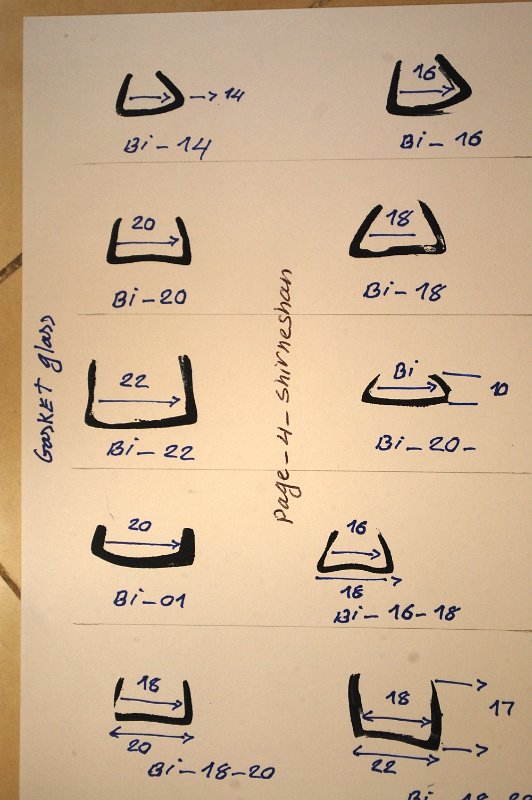 14
Bi-14
16
Bi-16
20
Bi-20
18
Bi-18
GasKET glass
page-4-shirneshan
22
Bi-22
Bi
10
Bi-20-
20
Bi-01
16
18
Bi-16-18
18
20
Bi-18-20
18
17
22